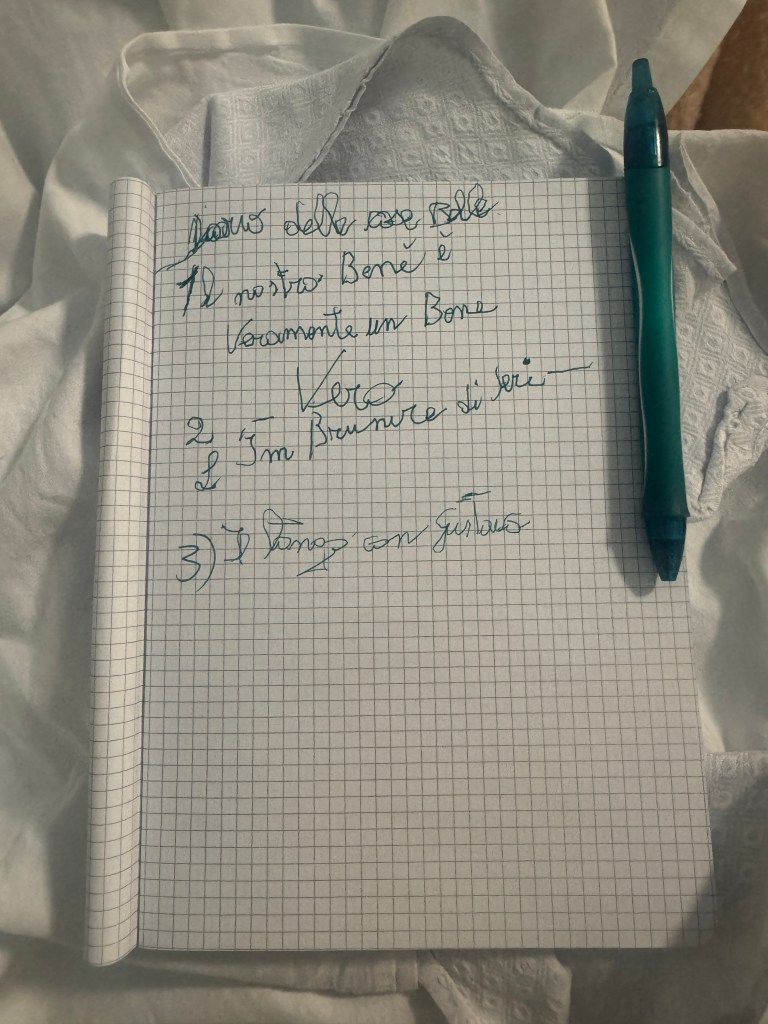 delle cose Belle
1 Il nostro Bene è
Veramente un Bene
Vero
2 Im Brunire di Ieri
3) I Tango con Gustavo